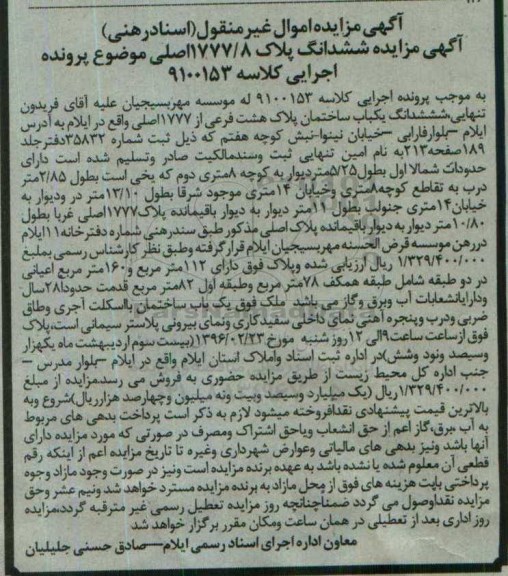 آگهی مزایده اموال غیرمنقول(اسنادرهنی)
آگهی مزایده ششدانگ پلاک ۱۷۷۷/۸اصلی موضوع پرونده
اجرایی کلاسه ۹۱۰۰۱۵۳
به موجب پرونده اجرایی کلاسه ۹۱۰۰۱۵۳ له موسسه مهربسیجیان علیه آقای فریدون
تنهایی،ششدانگ یکباب ساختمان پلاک هشت فرعی از ۱۷۷۷اصلی واقع در ایلام به آدرس
ایلام –بلوارفارابی –خیابان نینوا-نبش کوچه هفتم که ذیل ثبت شماره ۳۵۸۳۲دفترجلد
۱۸۹صفحه۲۱۳به نام امین تنهایی ثبت وسندمالکیت صادر وتسلیم شده است دارای
حدودات شمالا اول بطول۵/۲۵متردیوار به کوچه ۸متری دوم که یخی است بطول ۲/۸۵متر
درب به تقاطع کوچه۸متری وخیابان ۱۴متری موجود شرقا بطول ۱۳/۱۰متر در ودیوار به
خیابان۱۴متری جنوبا بطول ۱۱متر دیوار به دیوار باقیمانده پلاک۱۷۷۷اصلی غربا بطول
۱۰/۸۰متر دیوار به دیوار باقیمانده پلاک اصلی مذکور طبق سندرهنی شماره دفترخانه۱۱ایلام
دررهن موسسه قرض الحسنه مهربسیجیان ایلام قرار گرفته وطبق نظر کارشناس رسمی بمبلغ
۱/۳۲۹/۴۰۰/۰۰۰ ریال ارزیابی شده وپلاک فوق دارای ۱۱۲متر مربع و۱۶۰متر مربع اعیانی
در دو طبقه شامل طبقه همکف ۷۸متر مربع وطبقه اول ۸۲متر مربع قدمت حدودا۲۸سال
ودارایانشعابات آب وبرق وگاز می باشد ملک فوق یک باب ساختمان بااسکلت آجری وطاق
ضربی ودرب وپنجره آهنی نمای داخلی سفیدکاری ونمای بیرونی پلاستر سیمانی است،پلاک
فوق ازساعت ۹الی ۱۲روز شنبه مورخ ۱۳۹۶/۰۲/۲۳(بیست سوم اردیبهشت ماه یکهزار
وسیصد ونود وشش)در اداره ثبت اسناد واملاک استان ایلام واقع در ایلام –بلوار مدرس –
جنب اداره کل محیط زیست از طریق مزایده حضوری به فروش می رسد.مزایده از مبلغ
۱/۳۲۹/۴۰۰/۰۰۰ریال (یک میلیارد وسیصد وبیت ونه میلیون وچهارصد هزارریال)شروع وبه
بالاترین قیمت پیشنهادی نقدافروخته میشود لازم به ذکر است پرداخت بدهی های مربوط
به آب ،برق،گاز اعم از حق انشعاب ویاحق اشتراک ومصرف در صورتی که مورد مزایده دارای
آنها باشد ونیز بدهی های مالیاتی وعوارض شهرداری وغیره تا تاریخ مزایده اعم از اینکه رقم
قطعی آن معلوم شده یا نشده باشد به عهده برنده مزایده است ونیز در صورت وجود مازاد وجوه
پرداختی بابت هزینه های فوق از محل مازاد به برنده مزایده مسترد خواهد شد ونیم عشر وحق
مزایده نقداوصول می گردد ضمناچنانچه روز مزایده تعطیل رسمی غیر مترقبه گردد،مزایده
روز اداری بعد از تعطیلی در همان ساعت ومکان مقرر برگزار خواهد شد
معاون اداره اجرای اسناد رسمی ایلام—صادق حسنی جلیلیان